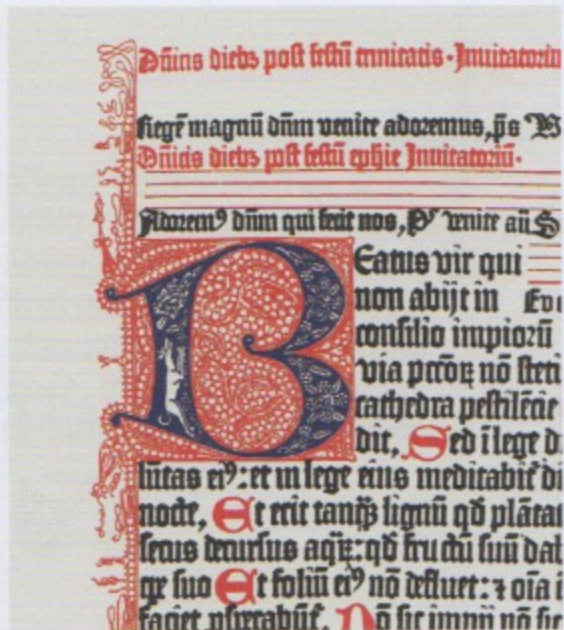 Dñics diebꝫ post festū trinitatis · Inuitatoriū
Regē magnū dñm venite adoremus, p̄s V
Dñicis diebꝫ post festū ephie Inuitatoriū ·
Adorem⁹ dñm qui fecit nos, P̄s venite aū S
Beatus vir qui
non abijt in Evo
consilio impiorū
via pctōꝝ nō steti
cathedra pestilēcie
dit, Sed ī lege d
lūtas ei⁹: et in lege eius meditabit̄ di
nocte, Et erit tanqꝫ lignū qd̄ plātat
secus decursus aqꝝ: qd̄ fructū suū dab
ꝑe suo Et foliū ei⁹ nō defluet: ⁊ oīa
faciet, ꝓsperabūt̄. Nō sic impii nō sic